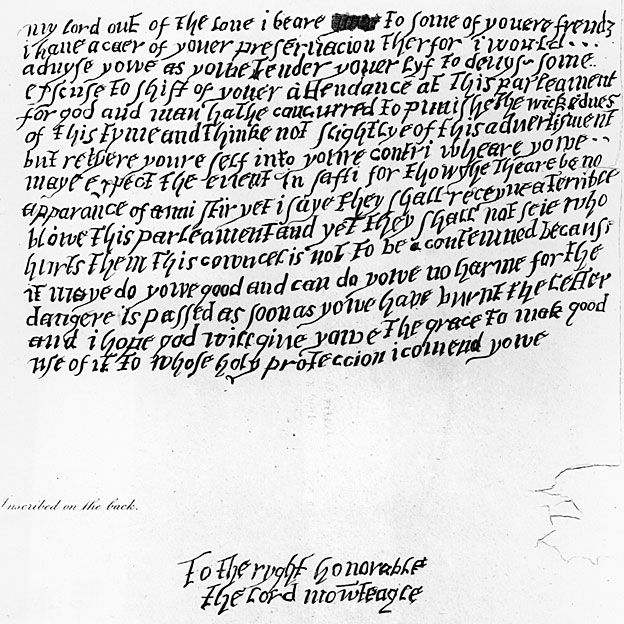 my lord out of the loue i beare to some of youere frendz
i haue a caer of youer preseruacion therfor i would
aduyse yowe as yowe tender youer lyf to deuys some
exscuse to shift of youer attendance at this parleament
for god and man hathe concurred to punishe the wickednes
of this tyme and thinke not slightlye of this aduertisment
but retyere youre self into youre contri wheare yowe
maye expect the euent in safti for thowghe theare be no
apparance of anni stir yet i saye they shall receyue a terrible
blowe this parleament and yet they shall not seie who
hurts them this cowncel is not to be contemned because
it maye do yowe good and can do yowe no harme for the
dangere is passed as soon as yowe have burnt the letter
and i hope god will give yowe the grace to mak good
use of it to whose holy proteccion i comend yowe
Inscribed on the back.
To the ryght honorable
the lord mowteagle